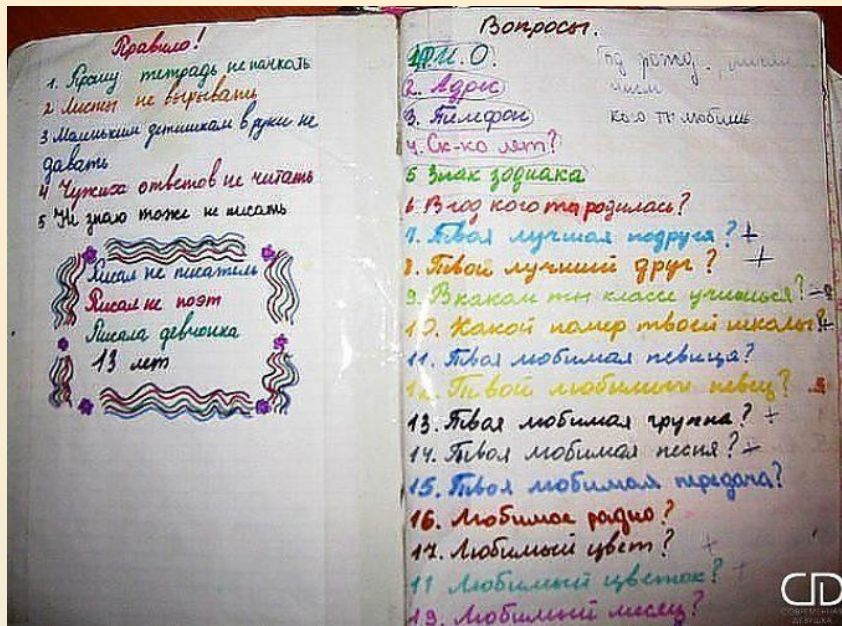 Правило!
1. Прошу тетрадь не пачкать
2 Листы не вырывать
3 Маленьким детишкам в руки не
давать
4 Чужих ответов не читать
5 Не знаю тоже не писать
Писал не писатель
Писал не поэт
Писала девчонка
13 лет
Вопросы.
1. Ф.И.О.
2. Адрес
3. Телефон
4. Ск-ко лет?
5 Знак зодиака
6. В год кого ты родилась?
7. Твоя лучшая подруга? +
8. Твой лучший друг? +
9. В каком ты классе учишься?
10. Какой номер твоей школы?
11. Твоя любимая певица?
12. Твой любимый певец?
13. Твоя любимая группа? +
14. Твоя любимая песня?
15. Твоя любимая передача?
16. Любимое радио?
17. Любимый цвет? +
11 Любимый цветок? +
19. Любимый месяц?
год рожд.,
числ
кого ты любишь
СОВРЕМЕННАЯ
ДЕВУШКА